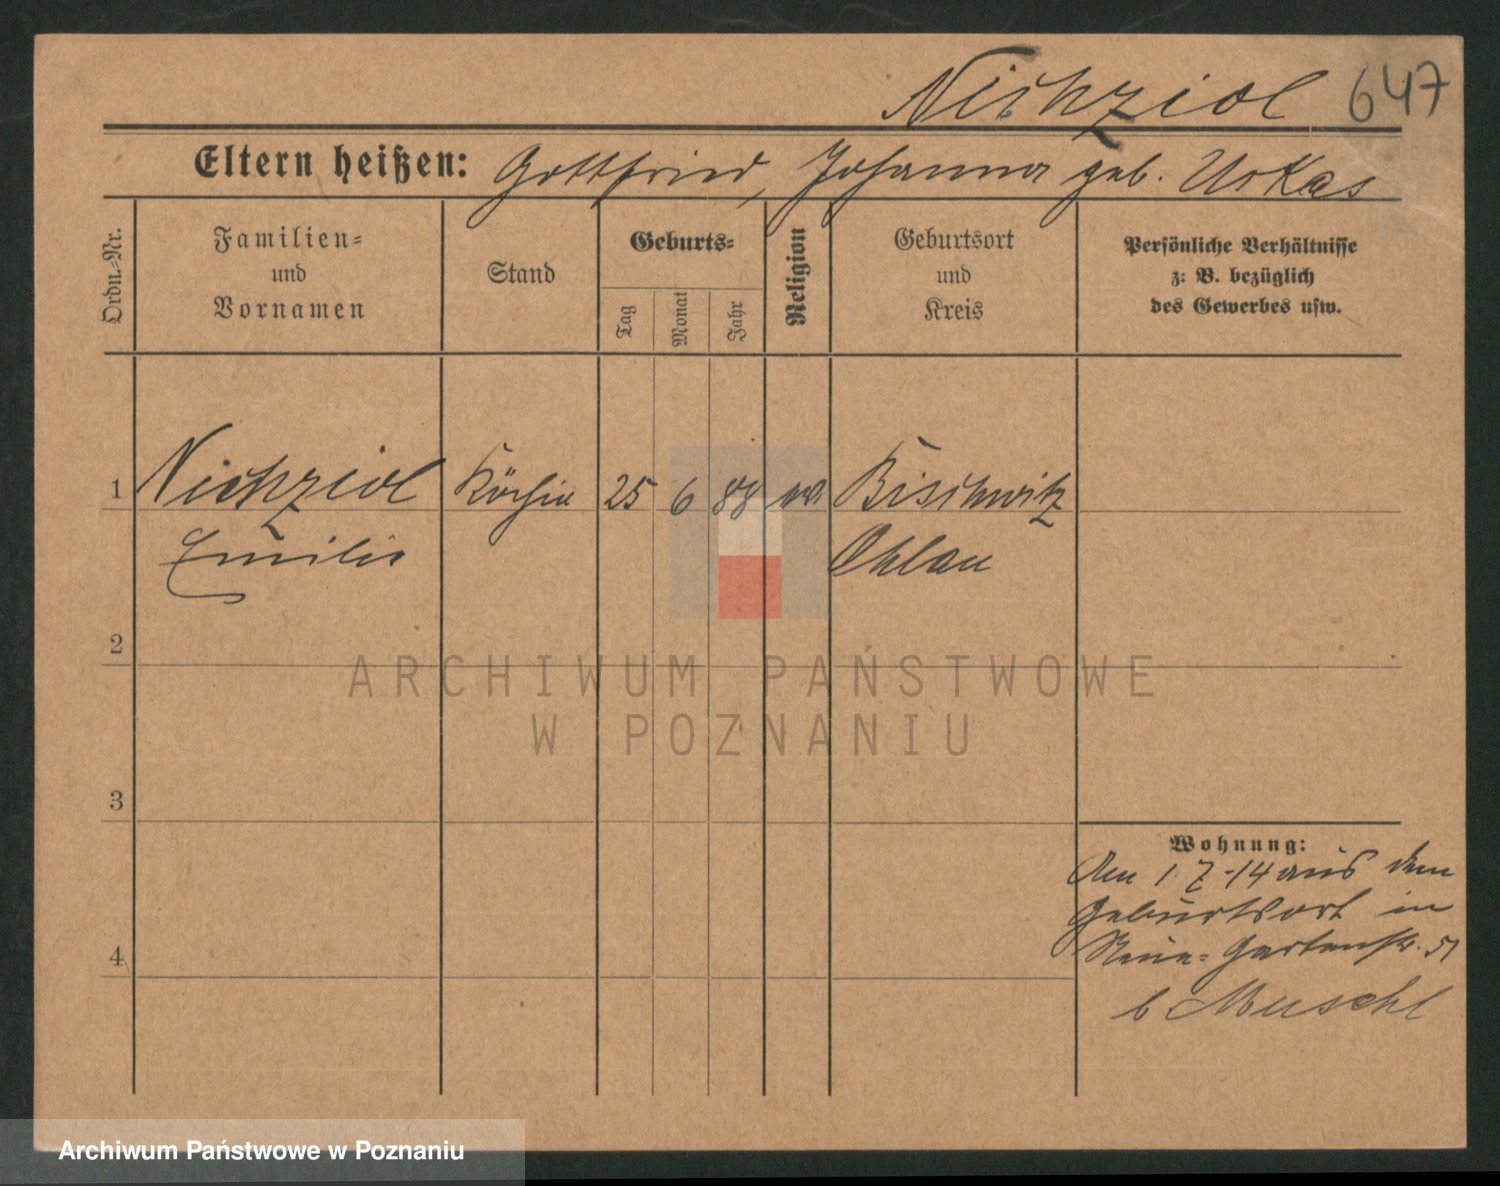 Nichziol 647
Eltern heißen: Gottfried, Johanna geb. Urkas
Ordn.-Nr.
Familien-
und
Vornamen
Stand
Geburts-
Tag
Monat
Jahr
Religion
Geburtsort
und
Kreis
Persönliche Verhältnisse
z. B. bezüglich
des Gewerbes usw.
1 Nichziol Köchin 25 6 88 ev. Bischwitz
Emilie Ohlau
2
ARCHIWUM PAŃSTWOWE
W POZNANIU
3
Wohnung:
Am 1. 7. 14 aus dem
Geburtsort in
4
Neue-Gartenstr. 51
b Muschl
Archiwum Państwowe w Poznaniu